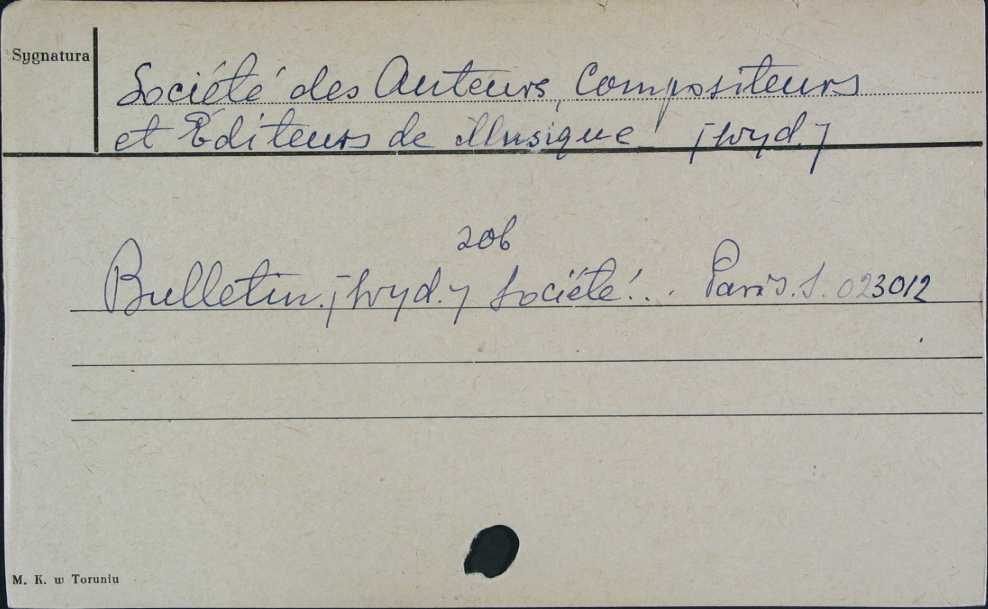 Sygnatura
Société des Auteurs, Compositeurs
et Éditeurs de Musique [wyd.]
zob
Bulletin. [wyd.] Société... Paris. S. 023012
M. K. w Toruniu